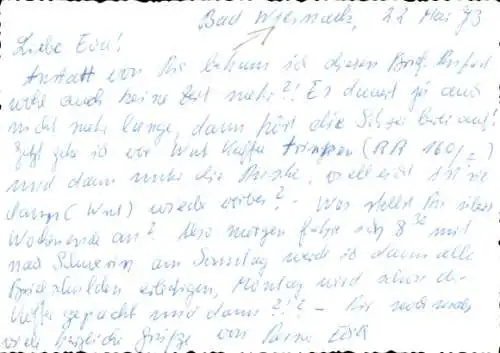 Bad Wilsnack, 22 Mai 73
Liebe Eva!
Anstatt von Dir bekam ich diesen Brief.
wohl auch keine Zeit mehr?! Es dauert ja auch
nicht mehr lange, dann hört die Schreiberei auf!
Jetzt gehe ich vor Wut Kaffee trinken (RR 160/)
und dann unter die Dusche, vielleicht ist die
dann (Wut) wieder vorbei? - Was stellst Du übers
Wochenende an? Also morgen fahre ich 8 30 mit
nach Schwerin am Sonntag werde ich dann alle
Briefschulden erledigen, Montag wird schon der
Koffer gepackt und dann?!? - Dir nochmals
viele herzliche Grüße von